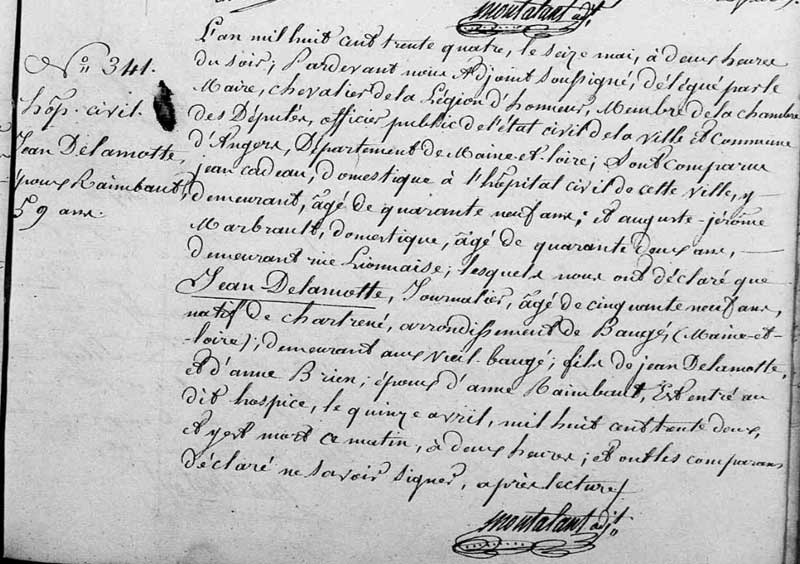 montalant adj.t
N.o 341.
hôp. civil.
Jean Delamotte,
époux Raimbault,
59 ans.
L'an mil huit cent trente quatre, le seize mai, à deux heures
du soir; Pardevant nous Adjoint soussigné, délégué par le
Maire, chevalier de la Légion d'honneur, Membre de la chambre
des Députés, officier public de l'état civil de la ville et Commune
d'Angers, Département de Maine-et-loire; sont comparus
jean cadeau, domestique à l'hôpital civil de cette ville, y
demeurant, âgé de quarante neuf ans; et auguste-jérôme
Marbrault, domestique, âgé de quarante deux ans, —
demeurant rue Lionnaise; lesquels nous ont déclaré que
Jean Delamotte, Journalier, âgé de cinquante neuf ans,
natif de chartrené, arrondissement de Baugé, (Maine-et-
-loire); demeurant aux vieil-baugé; fils de jean Delamotte,
et d'anne Brien; époux d'anne Raimbault, Est entré au
dit hospice, le quinze avril, mil huit cent trente deux,
et y est mort ce matin, à deux heures; et ont les comparans
déclaré ne savoir signer, après lecture/.
montalant adj.t